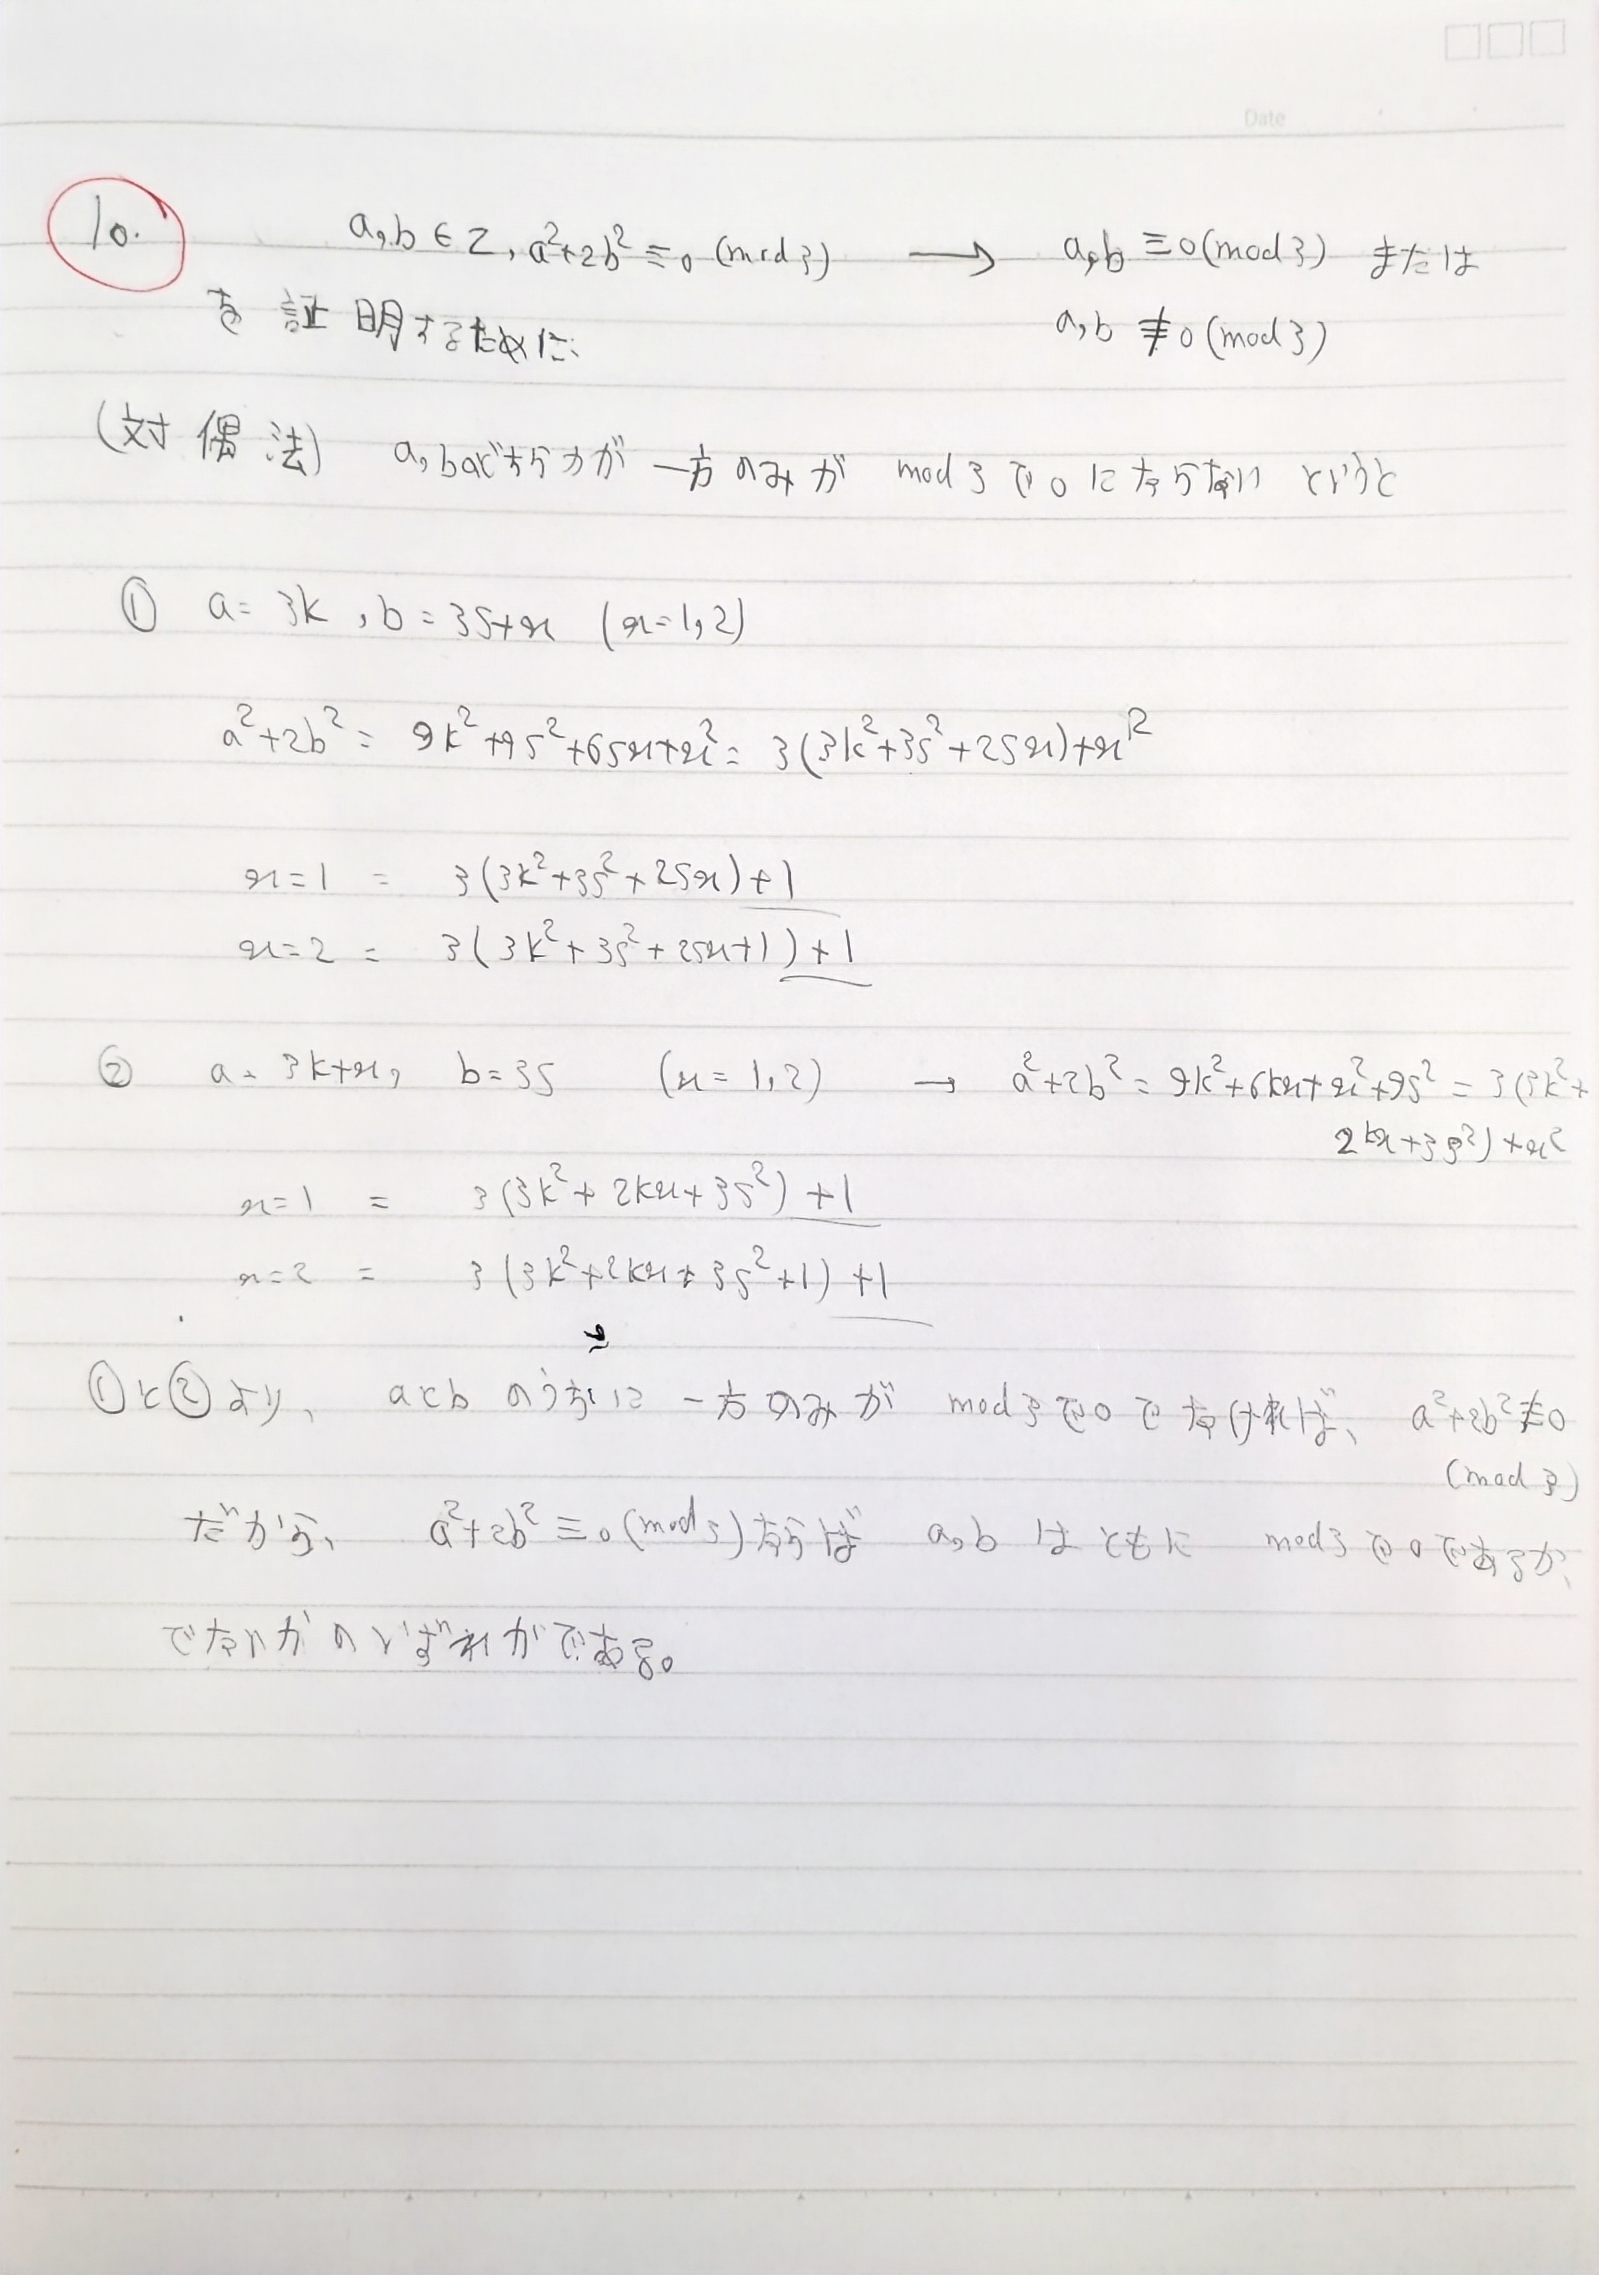 Date
10. a,b ∈ Z, a²+2b² ≡ 0 (mod 3) → a,b ≡ 0 (mod 3) または
を証明するために、 a,b ≢ 0 (mod 3)
(対偶法) a,bのどちらかが 一方のみが mod 3 で 0 にならない というと
① a = 3k , b = 3s+x (x=1,2)
a²+2b² = 9k²+9s²+6sx+x² = 3(3k²+3s²+2sx)+x²
x=1 = 3(3k²+3s²+2sx)+1
x=2 = 3(3k²+3s²+2sx+1)+1
② a = 3k+x, b=3s (x = 1,2) → a²+2b² = 9k²+6kx+x²+9s² = 3(3k²+
2kx+3s²)+x²
x=1 = 3(3k²+2kx+3s²)+1
x=2 = 3(3k²+2kx+3s²+1)+1
①と②より、 aとb のうちに 一方のみが mod 3 で 0 でなければ、 a²+2b² ≢ 0
(mod 3)
だから、 a²+2b² ≡ 0 (mod 3) ならば a,b はともに mod 3 で 0 であるか、
でないかのいずれかである。